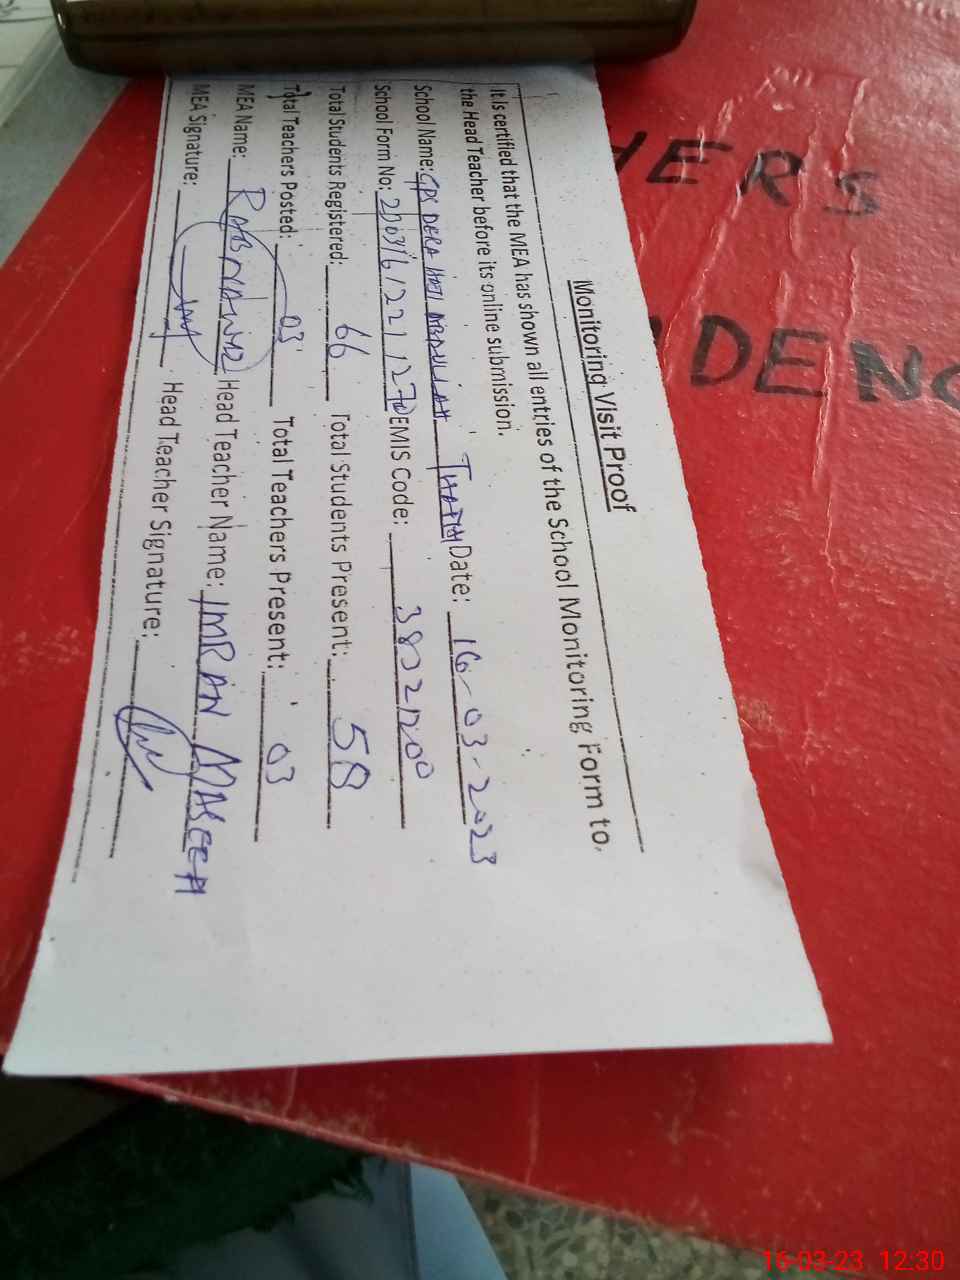 Monitoring Visit Proof
It is certified that the MEA has shown all entries of the School Monitoring Form to
the Head Teacher before its online submission.
School Name: GPS DERA HAJI ABDULLAH Date: 16-03-2023
School Form No: EMIS Code:
Total Students Registered: 66 Total Students Present: 58
Total Teachers Posted: 03 Total Teachers Present: 03
MEA Name: Head Teacher Name: IMRAN MASEEH
MEA Signature: Head Teacher Signature:
HERS
DENC
16-03-23 12:30